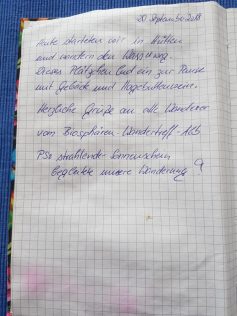 20. September 2018
Heute starteten wir in Hütten
und wandern den Wasserweg.
Dieses Plätzchen lud ein zur Pause
mit Gebäck und Hagebuttenwein.
Herzliche Grüße an alle Wanderer
vom Biosphären-Wandertreff-Alb
PS: strahlender Sonnenschein
begleitete unsere Wanderung